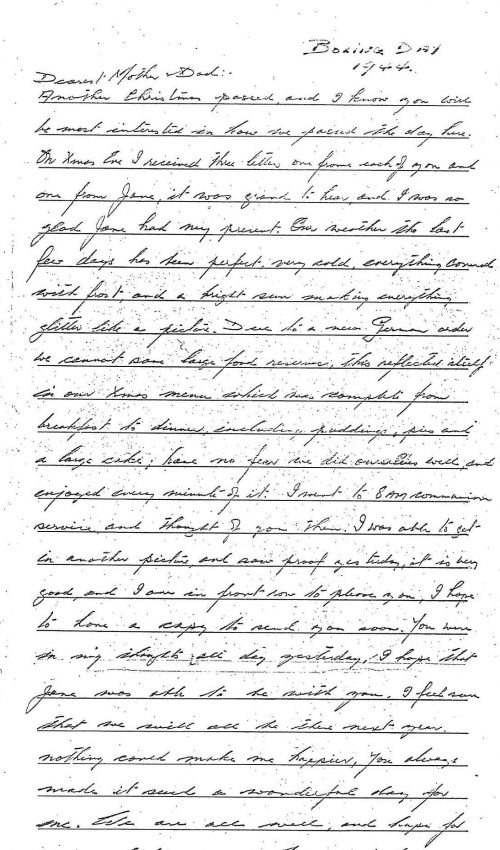 BOXING DAY
1944.
Dearest Mother & Dad:-
Another Christmas passed, and I know you will
be most interested in how we passed the day here.
On Xmas Eve I received three letter one from each of you and
one from Jane, it was grand to hear and I was so
glad Jane had my present. Our weather the last
few days has been perfect, very cold, everything covered
with frost, and a bright sun making everything
glitter like a picture. Due to a new German order
we cannot save large food reserves, this reflected itself
in our Xmas menu which was complete from
breakfast to dinner, including puddings, pies and
a large cake; have no fear we did ourselves well, and
enjoyed every minute of it. I went to 8 AM communion
service and thought of you then. I was able to get
in another picture, and saw proof yesterday, it is very
good, and I am in front row to please you, I hope
to have a copy to send you soon. You were
in my thoughts all day yesterday, I hope that
Jane was able to be with you. I feel sure
that we will all be there next year.
nothing could make me happier, You always
made it such a wonderful day for
me. We are all well, and hope for